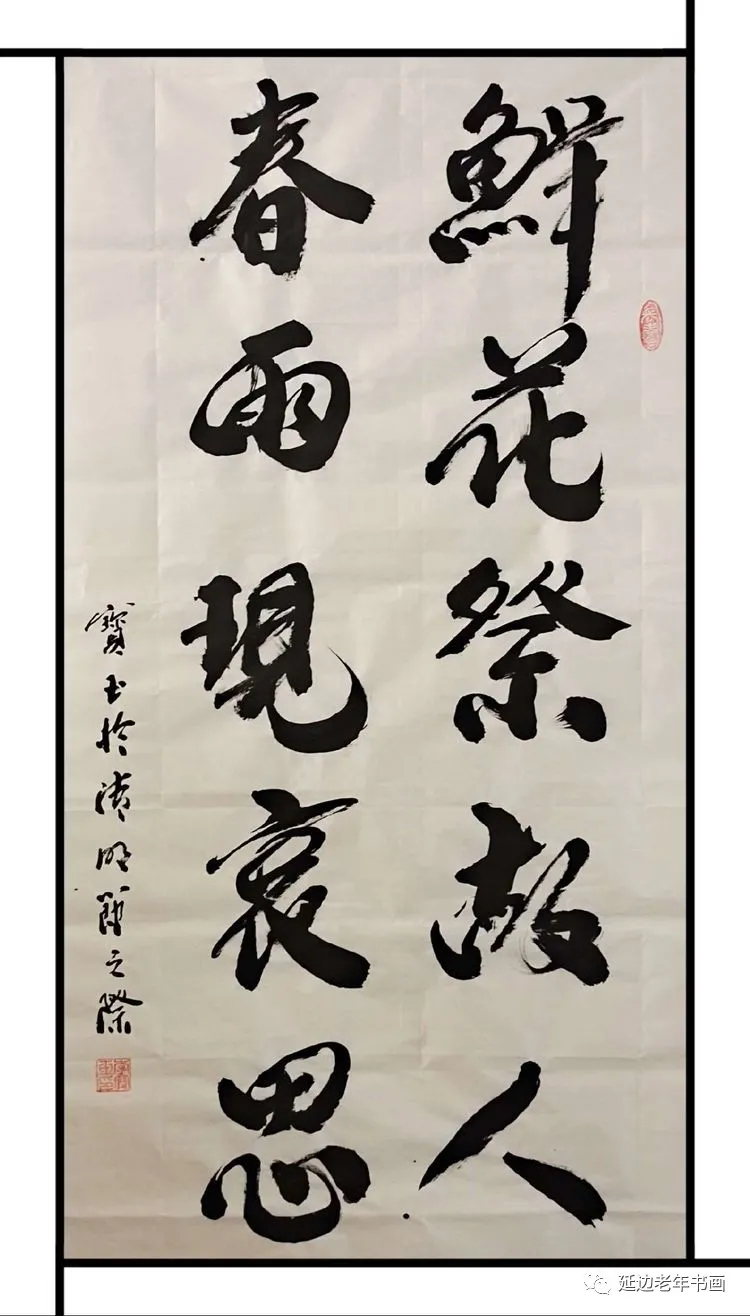 鮮花祭故人
春雨現哀思
寶玉於清明節之際
延边老年书画